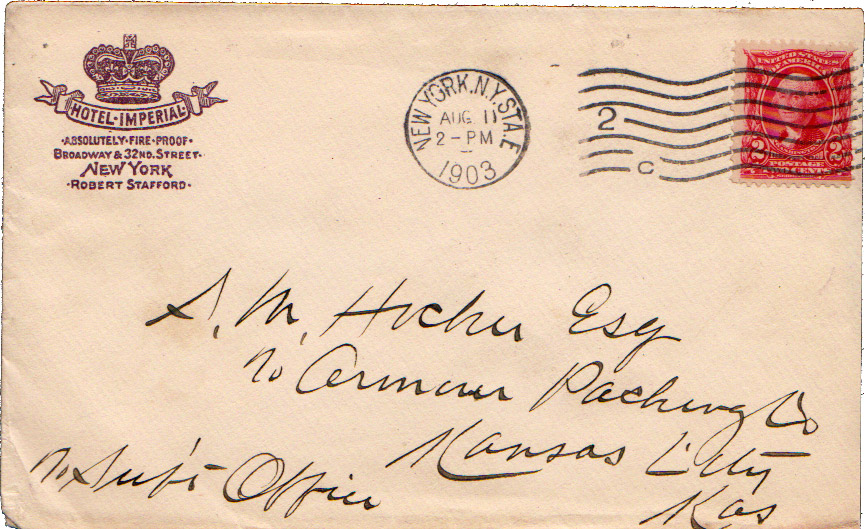 HOTEL·IMPERIAL
·ABSOLUTELY·FIRE·PROOF·
BROADWAY & 32ND. STREET·
NEW YORK
·ROBERT STAFFORD·
NEW YORK, N.Y. STA. E
AUG 11
2-PM
1903
2
C
UNITED STATES
OF AMERICA
2 2
POSTAGE
TWO CENTS
S. M. Hocker Esq
% Armour Packing Co
Kansas City
Kas
% Supt Office